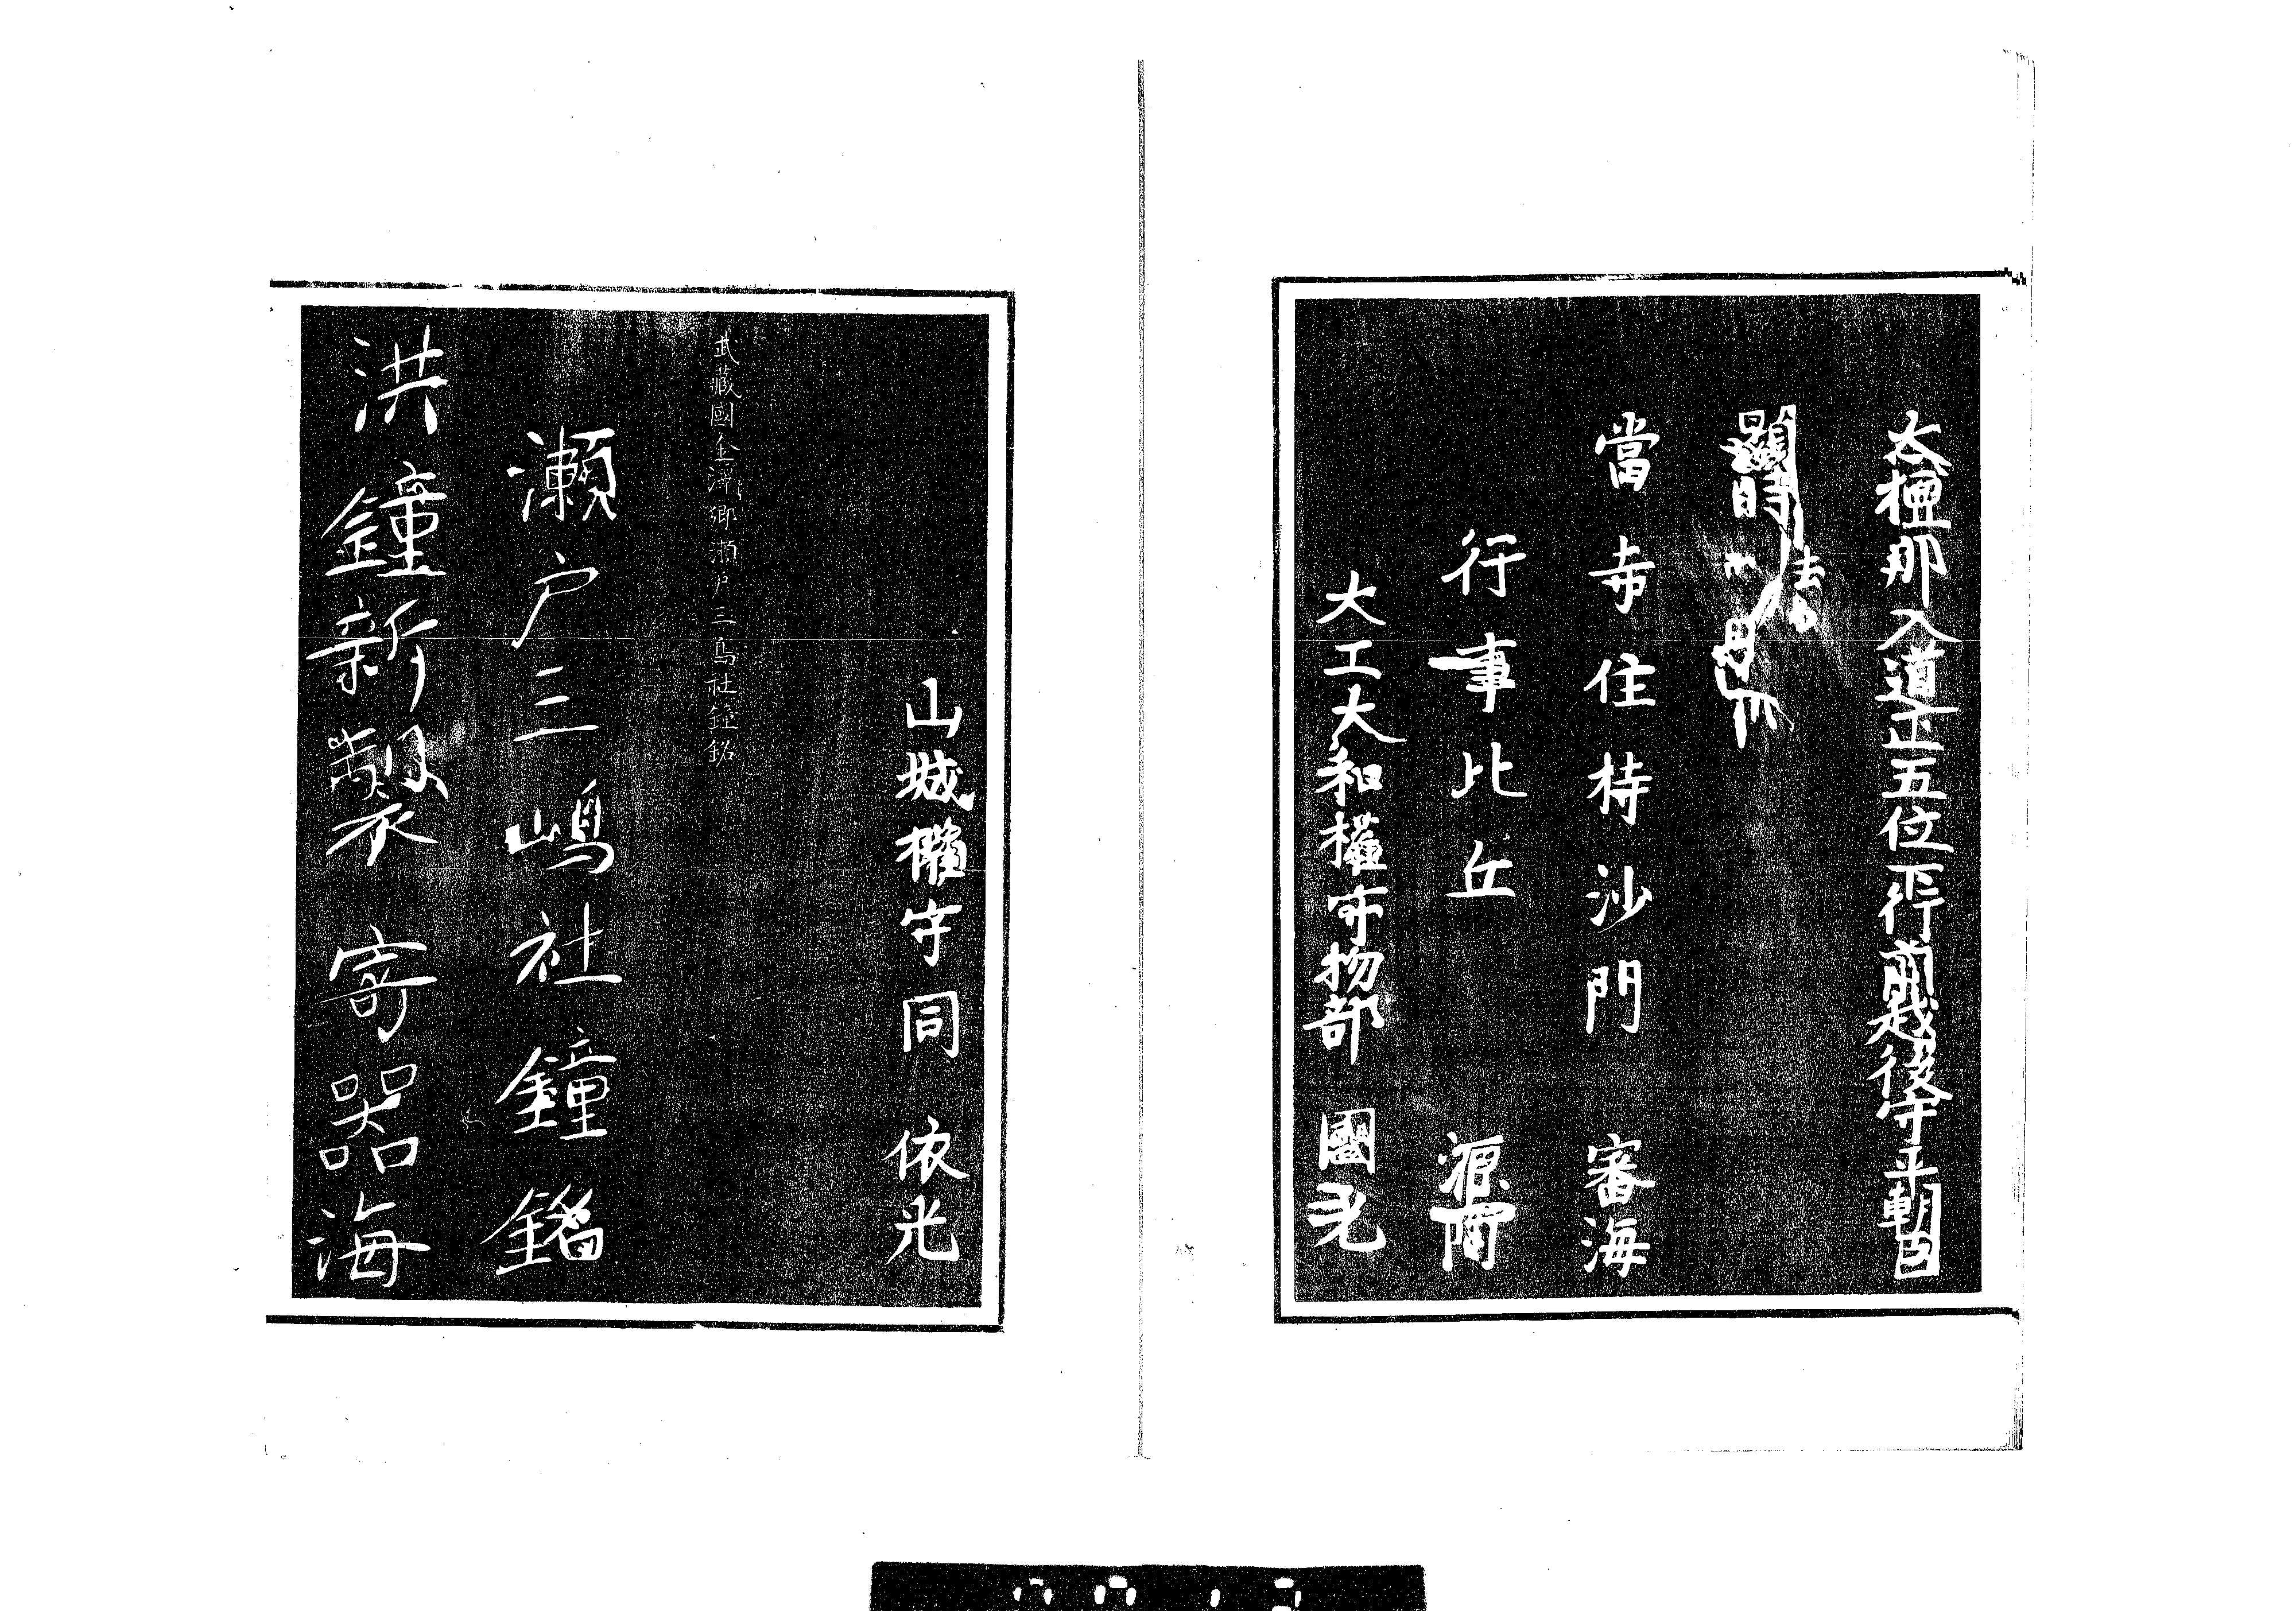 大檀那入道正五位下行前越後守平朝臣
顯時 法名
當寺住持沙門 審海
行事比丘 源阿
大工大和權守物部 國光
山城權守同 依光
武藏國金澤鄉瀬戶三島社鐘銘
瀬戶三嶋社鐘銘
洪鐘新製 寄器海